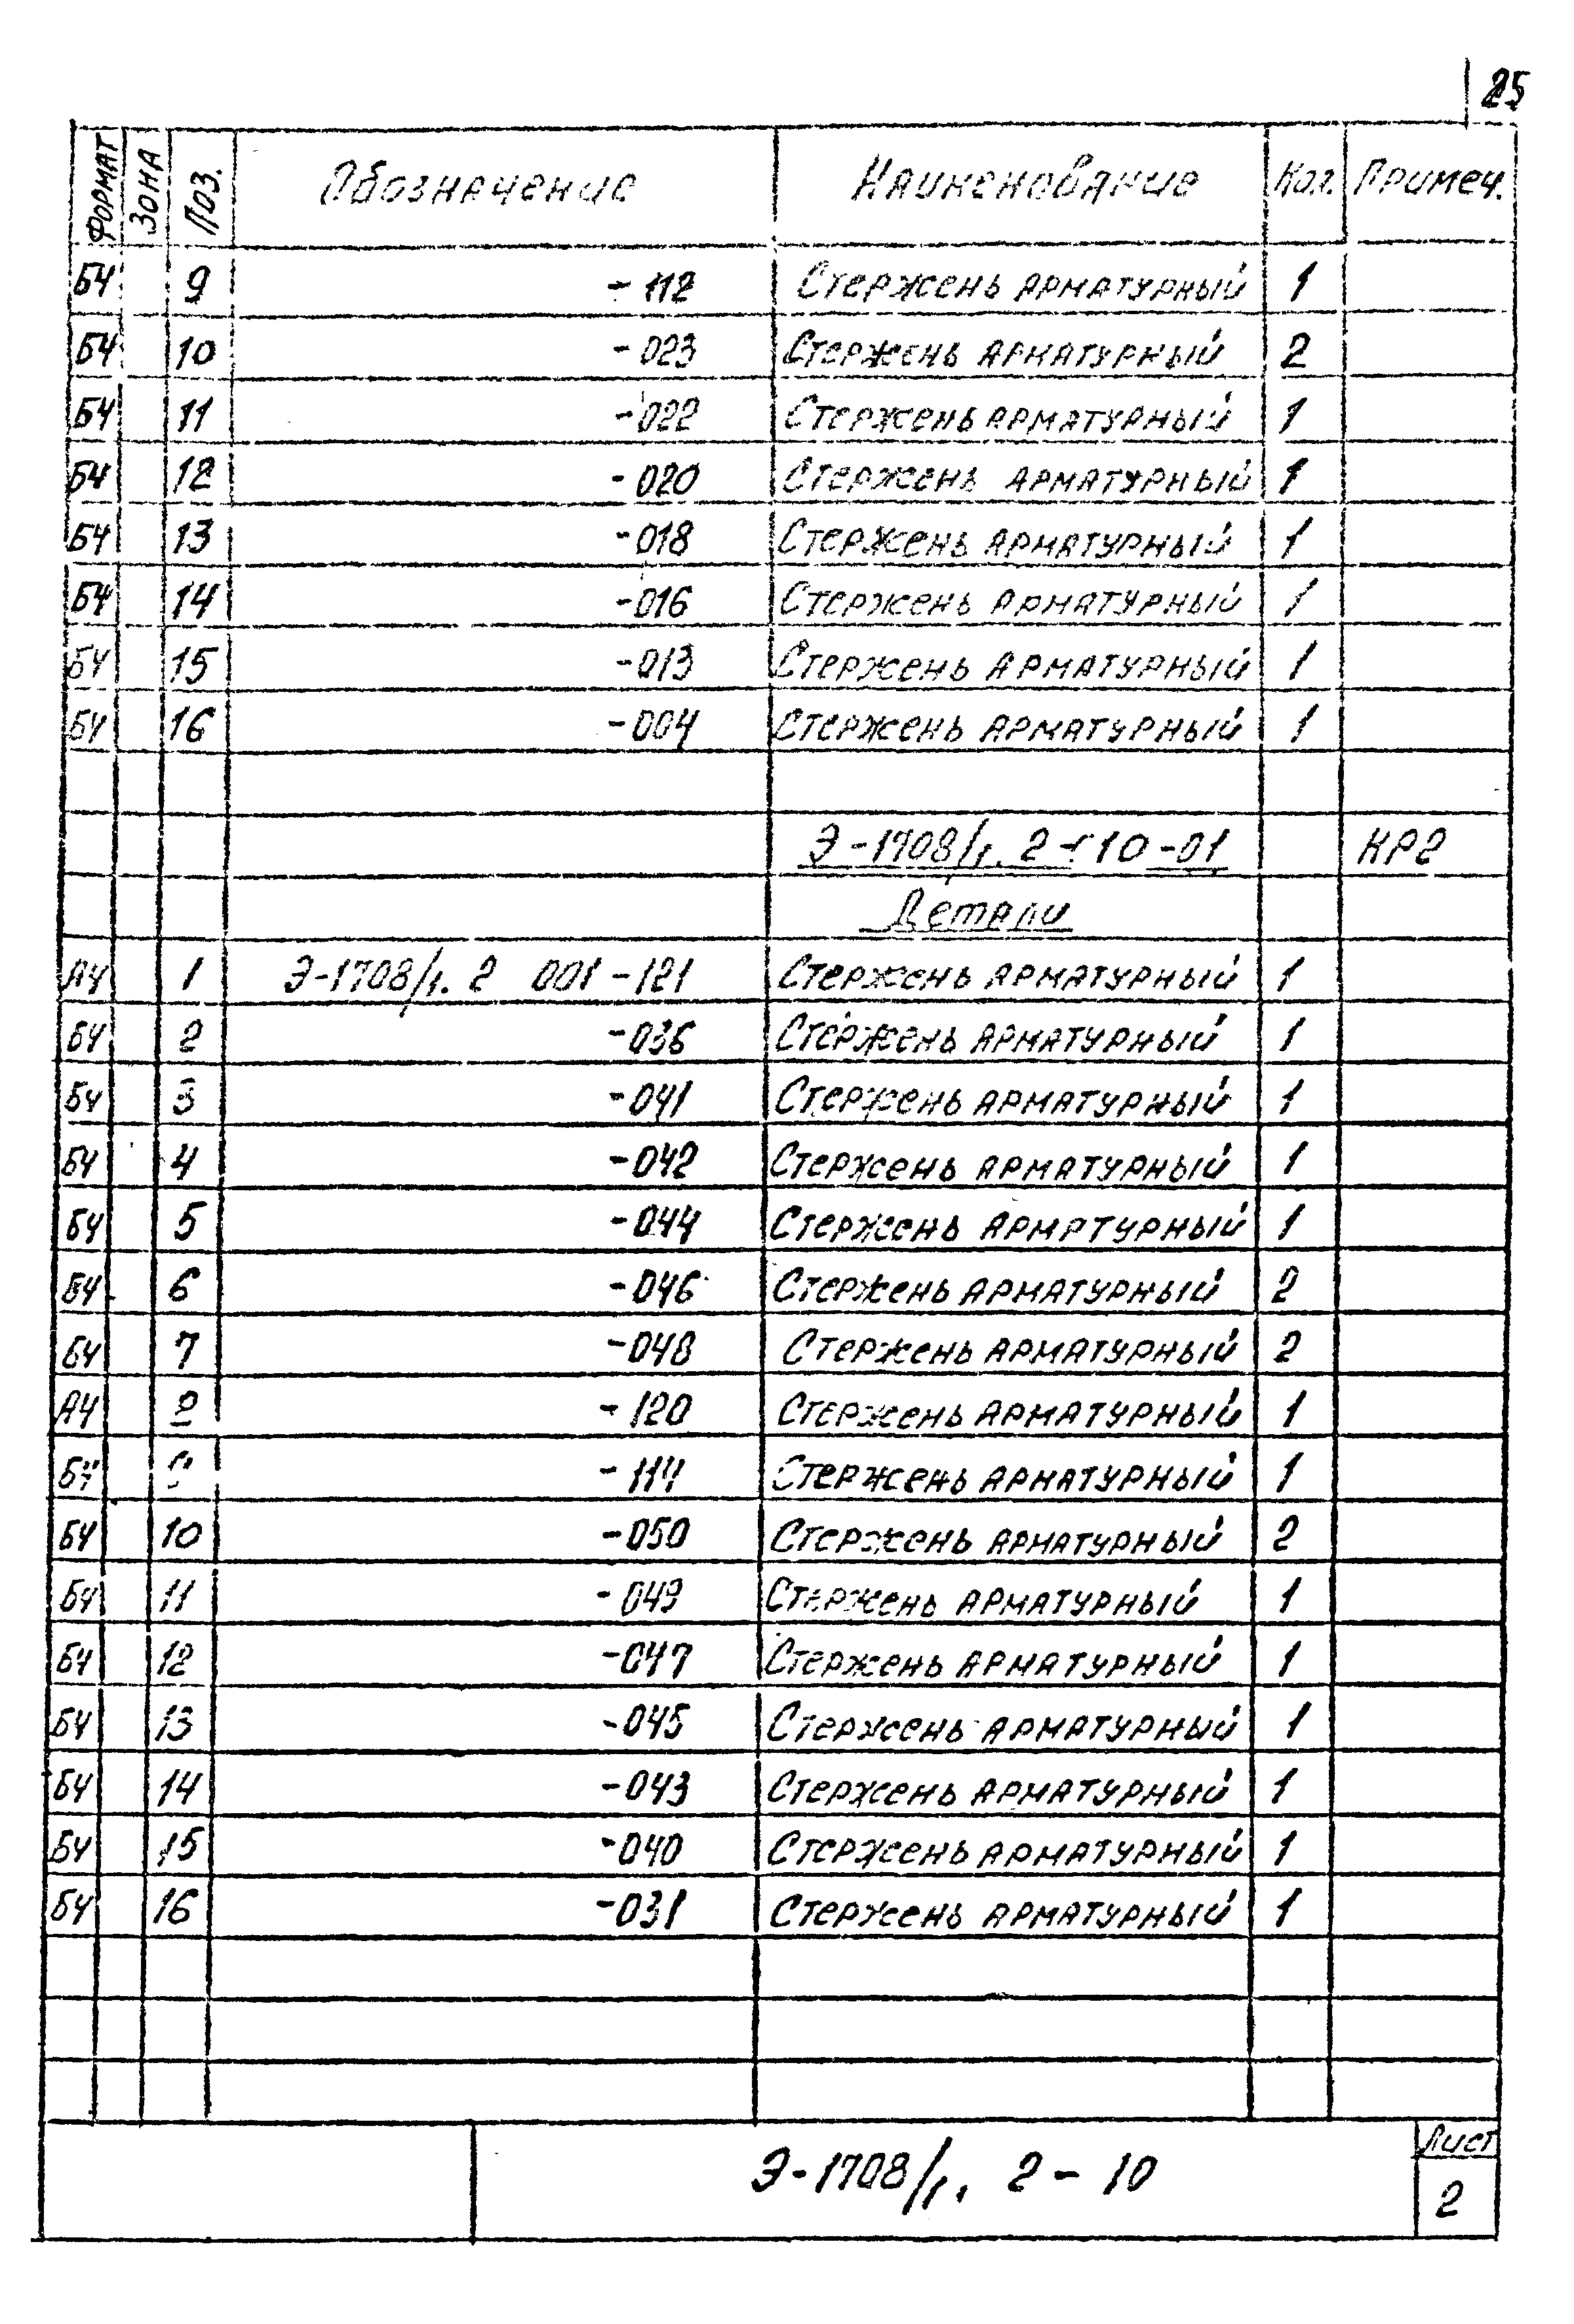 25
ФОРМАТ ЗОНА Поз. Обозначение Наименование Кол. Примеч.
БЧ 9 -112 Стержень арматурный 1
БЧ 10 -023 Стержень арматурный 2
БЧ 11 -022 Стержень арматурный 1
БЧ 12 -020 Стержень арматурный 1
БЧ 13 -018 Стержень арматурный 1
БЧ 14 -016 Стержень арматурный 1
БЧ 15 -013 Стержень арматурный 1
БЧ 16 -004 Стержень арматурный 1
Э-1708/1. 2-10-01 КР2
Детали
А4 1 Э-1708/1. 2 001-121 Стержень арматурный 1
БЧ 2 -036 Стержень арматурный 1
БЧ 3 -041 Стержень арматурный 1
БЧ 4 -042 Стержень арматурный 1
БЧ 5 -044 Стержень арматурный 1
БЧ 6 -046 Стержень арматурный 2
БЧ 7 -048 Стержень арматурный 2
А4 8 -120 Стержень арматурный 1
БЧ 9 -114 Стержень арматурный 1
БЧ 10 -050 Стержень арматурный 2
БЧ 11 -049 Стержень арматурный 1
БЧ 12 -047 Стержень арматурный 1
БЧ 13 -045 Стержень арматурный 1
БЧ 14 -043 Стержень арматурный 1
БЧ 15 -040 Стержень арматурный 1
БЧ 16 -031 Стержень арматурный 1
Э-1708/1. 2-10
Лист
2